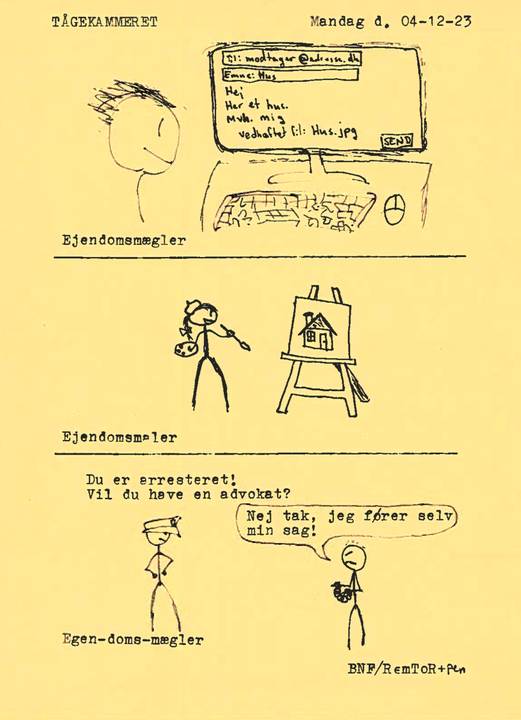 TÅGEKAMMERET Mandag d. 04-12-23
Til: modtager@adresse.dk
Emne: Hus
Hej
Her et hus.
Mvh. mig
vedhæftet fil: Hus.jpg
SEND
Ejendomsmægler
Ejendomsmaler
Du er arresteret!
Vil du have en advokat?
Nej tak, jeg fører selv
min sag!
Egen-doms-mægler
BNF/RemToR+pen